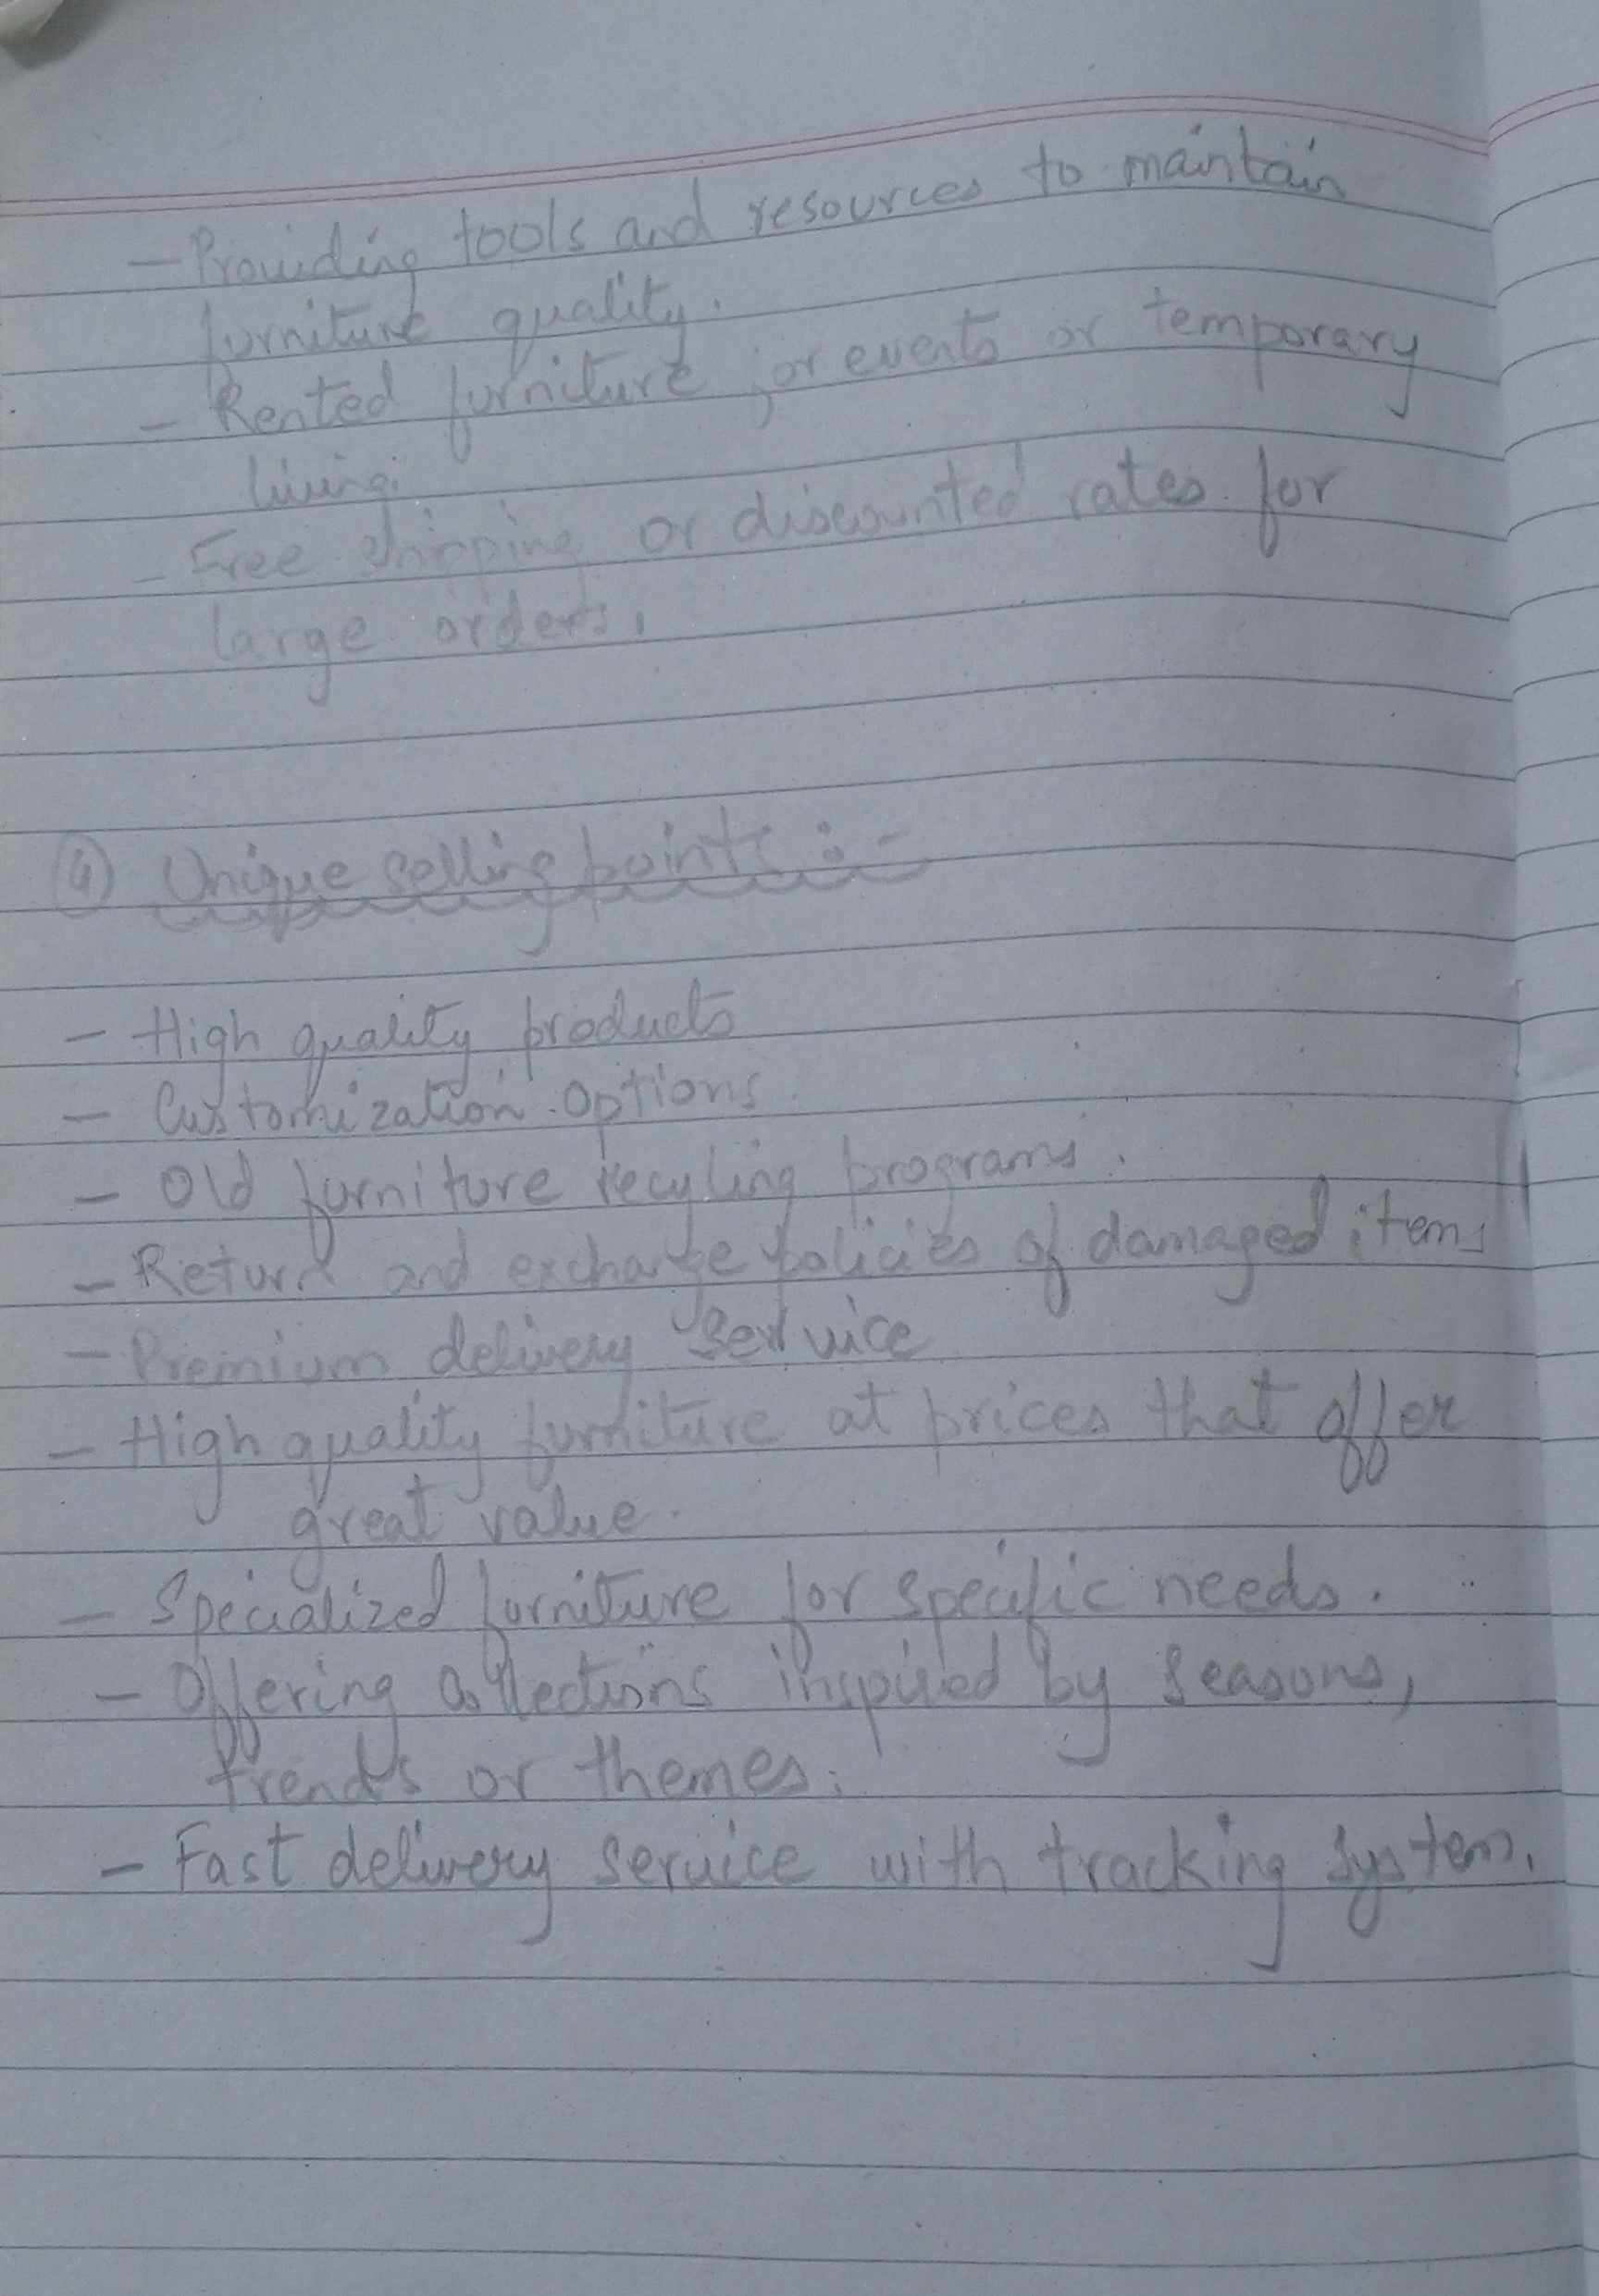 - Providing tools and resources to maintain
furniture quality.
- Rented furniture for events or temporary
living.
- Free shipping or discounted rates for
large orders.
④ Unique selling points :-
- High quality products
- Customization options
- Old furniture recyling programs.
- Return and exchange policies of damaged items
- Premium delivery service
- High quality furniture at prices that offer
great value.
- Specialized furniture for specific needs.
- Offering collections inspired by seasons,
trends or themes.
- Fast delivery service with tracking system.